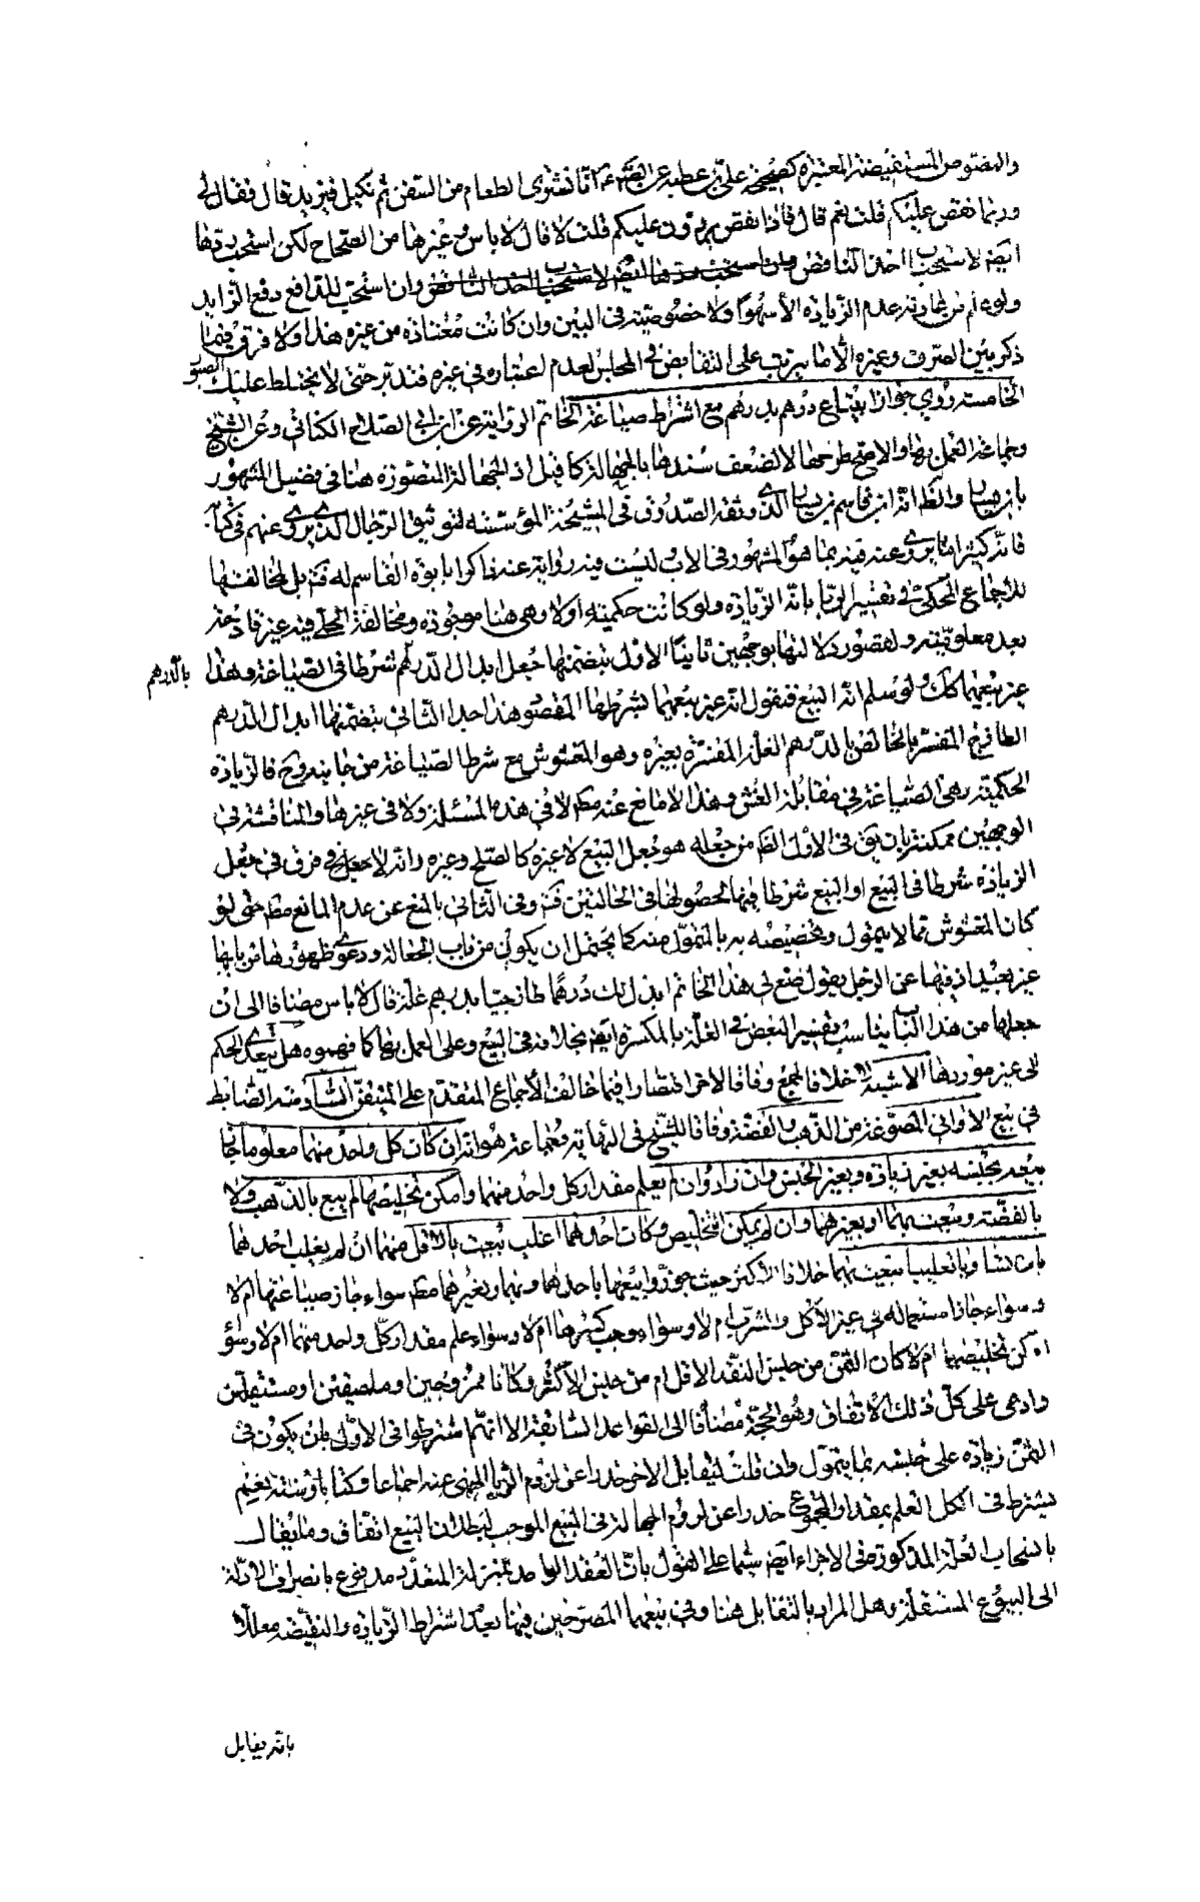 والنصوص المستفيضة المعتبرة كصحيحة علي بن عطية عن الصادق ع انا نشترى الطعام من السفن ثم نكيل فيزيد قال فقال لي
وربما نقص عليكم قلت نعم قال فاذا نقص يردون عليكم قلت لا قال لا باس وغيرها من الصحاح لكن استحب ردها
ايضا لاستحباب اخذ الناقص وان استحب للدافع دفع الزايد
ولو علم من عادته عدم الزيادة الا سهوا ولا خصوصية في البين وان كانت معتادة من غيره هذا ولا فرق فيما
ذكر بين الصرف وغيره الا ما يترتب على التقابض في المجلس لعدم اعتباره في غيره فتدبر حتى لا يختلط عليك الصور
الخامسة روي جواز ابتياع درهم بدرهم مع اشتراط صياغة الخاتم الرواية عن ابي الصلاح الكناني وعن الشيخ
وجماعة العمل بها والاصح طرحها لا لضعف سندها بالجهالة كما قيل اذ الجهالة المتصورة هنا في فضيل المشهور
الذي وثقه الصدوق في المشيخة المؤسسة لتوثيق الرجال الذين روى عنهم في كتابه
فانه كثيرا ما يروى عنه فيه بما هو المشهور في الاب وليست فيه رواية عنه ذاكرا بابوة القاسم له فتدبر بل لمخالفتها
للاجماع المحكى في تفسير الربا بانه الزيادة ولو كانت حكمية اولا وهى هنا موجودة ومخالفة الحلي فيه غير قادحة
بعد معلوميته ولقصور دلالتها بوجهين ثانيا الاول بتضمنها جعل ابدال الدرهم شرطا في الصياغة وهذا
بالدرهم
غير بيعهما كك ولو سلم انه البيع فنقول انه غير بيعهما بشرطها المقصود هذا احدا الثانى بتضمنها ابدال الدرهم
الطازج المفسر بالخالص بالدرهم الغلة المفسرة بغيره وهو المغشوش مع شرط الصياغة من جانبه وح فالزيادة
الحكمية وهى الصياغة في مقابلة الغش وهذا لا مانع عنه مطلقا لا في هذه المسئلة ولا في غيرها والمناقشة في
الوجهين ممكنة بان يق في الاول الظ من جعله هو جعل البيع لا غيره كالصلح وغيره وانه لا فرق في جعل
الزيادة شرطا في البيع او البيع شرطا فيها لحصولها في الحالتين فتدبر وفى الثانى بالمنع عن عدم المانع مطلقا حتى لو
كان المغشوش مما لا يتمول وتخصيصه به بالمتمول منه كما يحتمل ان يكون من باب الجعالة ودعوى ظهورها من بابها
غير بعيد اذ فيها عن الرجل يقول صنع لى هذا الخاتم ابدل لك درهما طازجيا بدرهم غلة قال لا باس مضافا الى ان
جعلها من هذا الباب يناسب تفسير البعض في الغلة بالمكسرة ايضا بخلافه في البيع وعلى العمل بها كما فهموه هل يتعدى الحكم
الى غير موردها الاشبه لا خلافا لجمع وفاقا لاخر اقتصارا فيما خالف الاجماع المتقدم على المتيقن السادسة الضابط
في بيع الاواني المصوغة من الذهب والفضة وفاقا للشيخ في النهاية وجماعة هو انه ان كان كل واحد منهما معلوما جاز
بيعه بجنسه بغير زيادة وبغير الجنس وان زاد وان لم يعلم مقدار كل واحد منهما وامكن تخليصهما لم يبع بالذهب ولا
بالفضة وبيعت بهما او بغيرهما وان لم يمكن التخليص وكان احدهما اغلب بيعت بالاقل منهما ان لم يغلب احدهما
بان تساويا تغليبا بيعت بهما خلافا للاكثر حيث جوزوا بيعها باحدهما وبهما وبغيرهما مطلقا سواء جاز صياغتها ام لا
وسواء جاز استعماله في غير الاكل والشرب ام لا وسواء وجب كسرها ام لا وسواء علم مقدار كل واحد منهما ام لا وسواء
امكن تخليصهما ام لا كان الثمن من جنس النقد الاقل ام من جنس الاكثر وكانا ممزوجين او ملصقين او مستقلين
وادعى على كل ذلك الاتفاق وهو الحجة مضافا الى القواعد السابقة الا انهم اشترطوا في الاول بان يكون في
الثمن زيادة على جنسه بما يتمول وان قلت ليقابل الاخر حذرا عن لزوم الربا المنهى عنه اجماعا وكتابا وسنة نعم
يشترط في الكل العلم بمقدار المجموع حذرا عن لزوم الجهالة في البيع الموجب لبطلان البيع اتفاقا وما يقال
بانسحاب العلة المذكورة في الاجزاء ايضا سيما على القول بان العقد الواحد بمنزلة المتعدد مدفوع بانصراف الادلة
الى البيوع المستقلة وهل المراد بالتقابل هنا وفى بيعهما المصرحين فيها بعد اشتراط الزيادة والنقيضة معللا
بانه يقابل